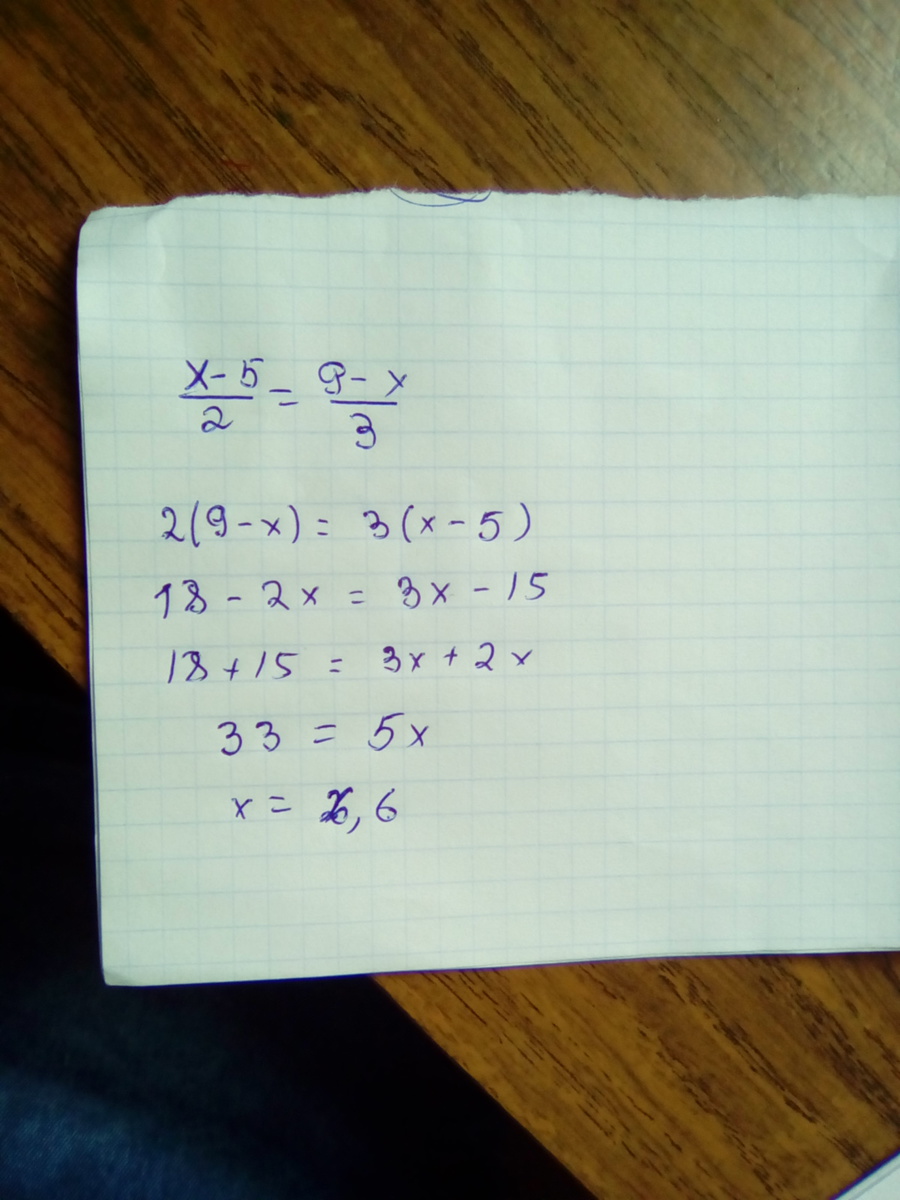 x-5/2 = 9-x/3
2(9-x) = 3(x-5)
18-2x = 3x-15
18+15 = 3x+2x
33 = 5x
x = 6,6